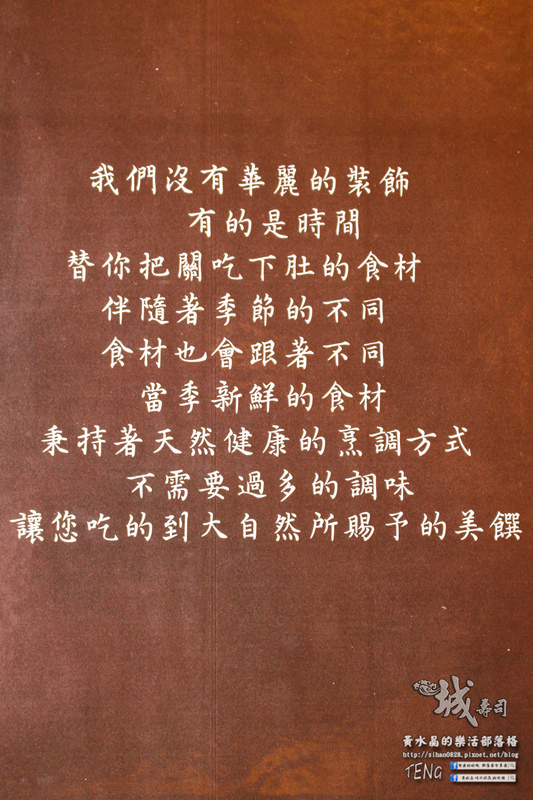 我們沒有華麗的裝飾
有的是時間
替你把關吃下肚的食材
伴隨著季節的不同
食材也會跟著不同
當季新鮮的食材
秉持著天然健康的烹調方式
不需要過多的調味
讓您吃的到大自然所賜予的美饌
城壽司
黃水晶的樂活部落格
http://sihan0828.pixnet.net/blog
TENG